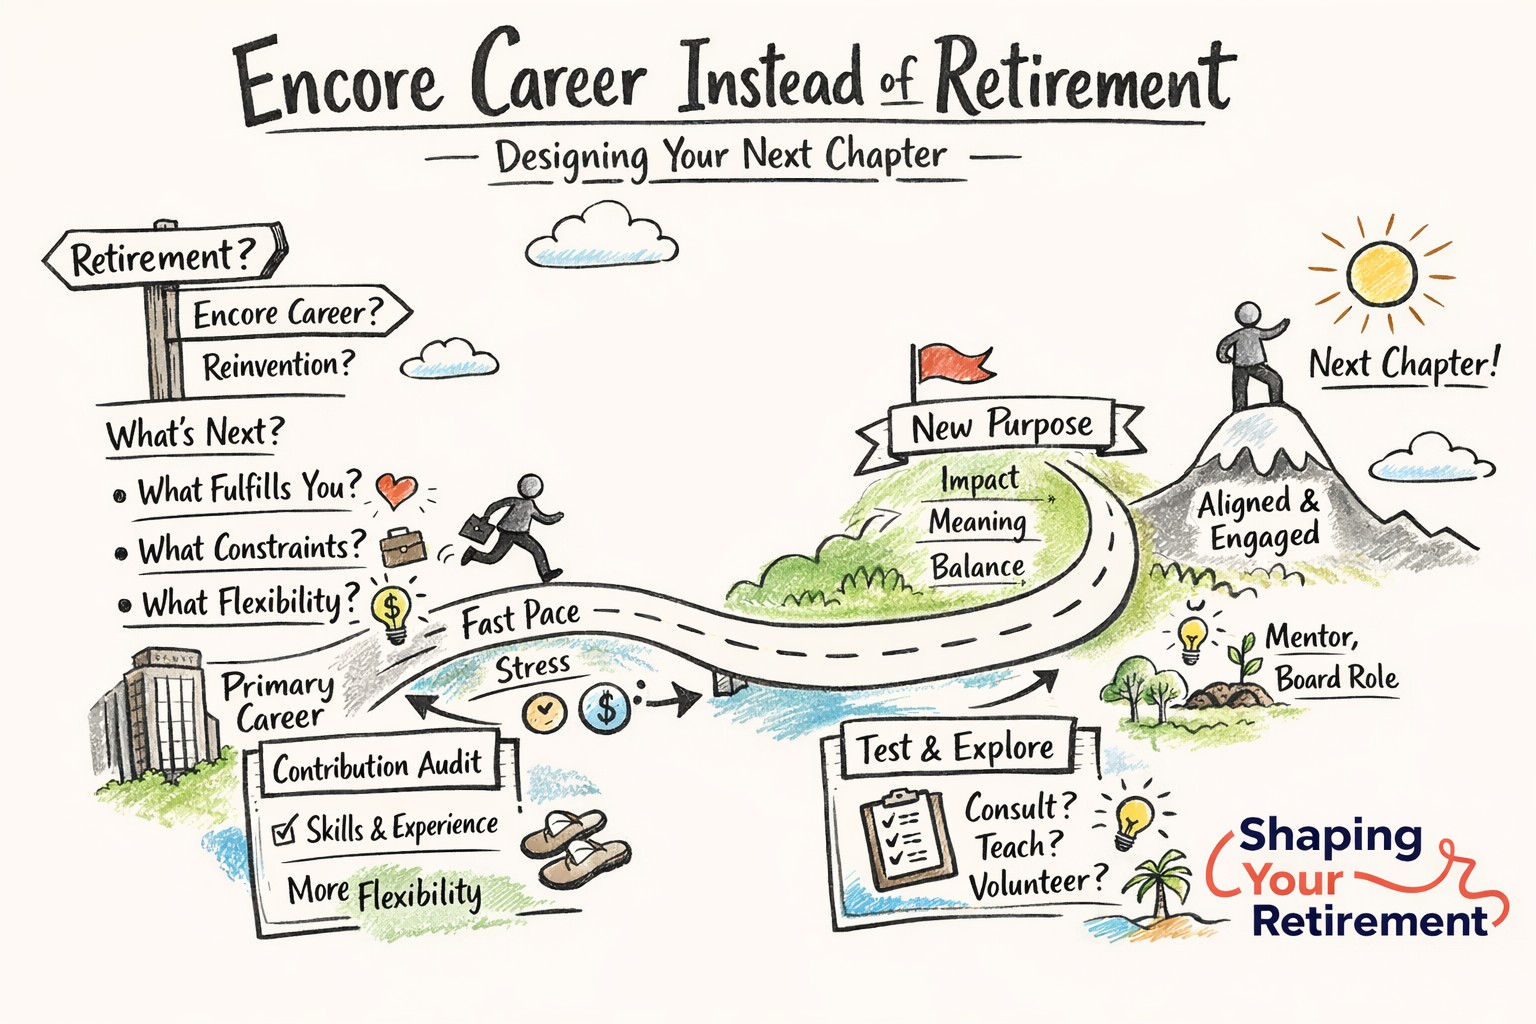 Encore Career Instead of Retirement
Designing Your Next Chapter
Retirement?
Encore Career?
Reinvention?
What's Next?
• What Fulfills You?
• What Constraints?
• What Flexibility?
$
Primary
Career
Fast Pace
Stress
$
New Purpose
Impact
Meaning
Balance
Next Chapter!
Aligned &
Engaged
Mentor,
Board Role
Contribution Audit
Skills & Experience
More Flexibility
Test & Explore
Consult?
Teach?
Volunteer?
Shaping
Your
Retirement